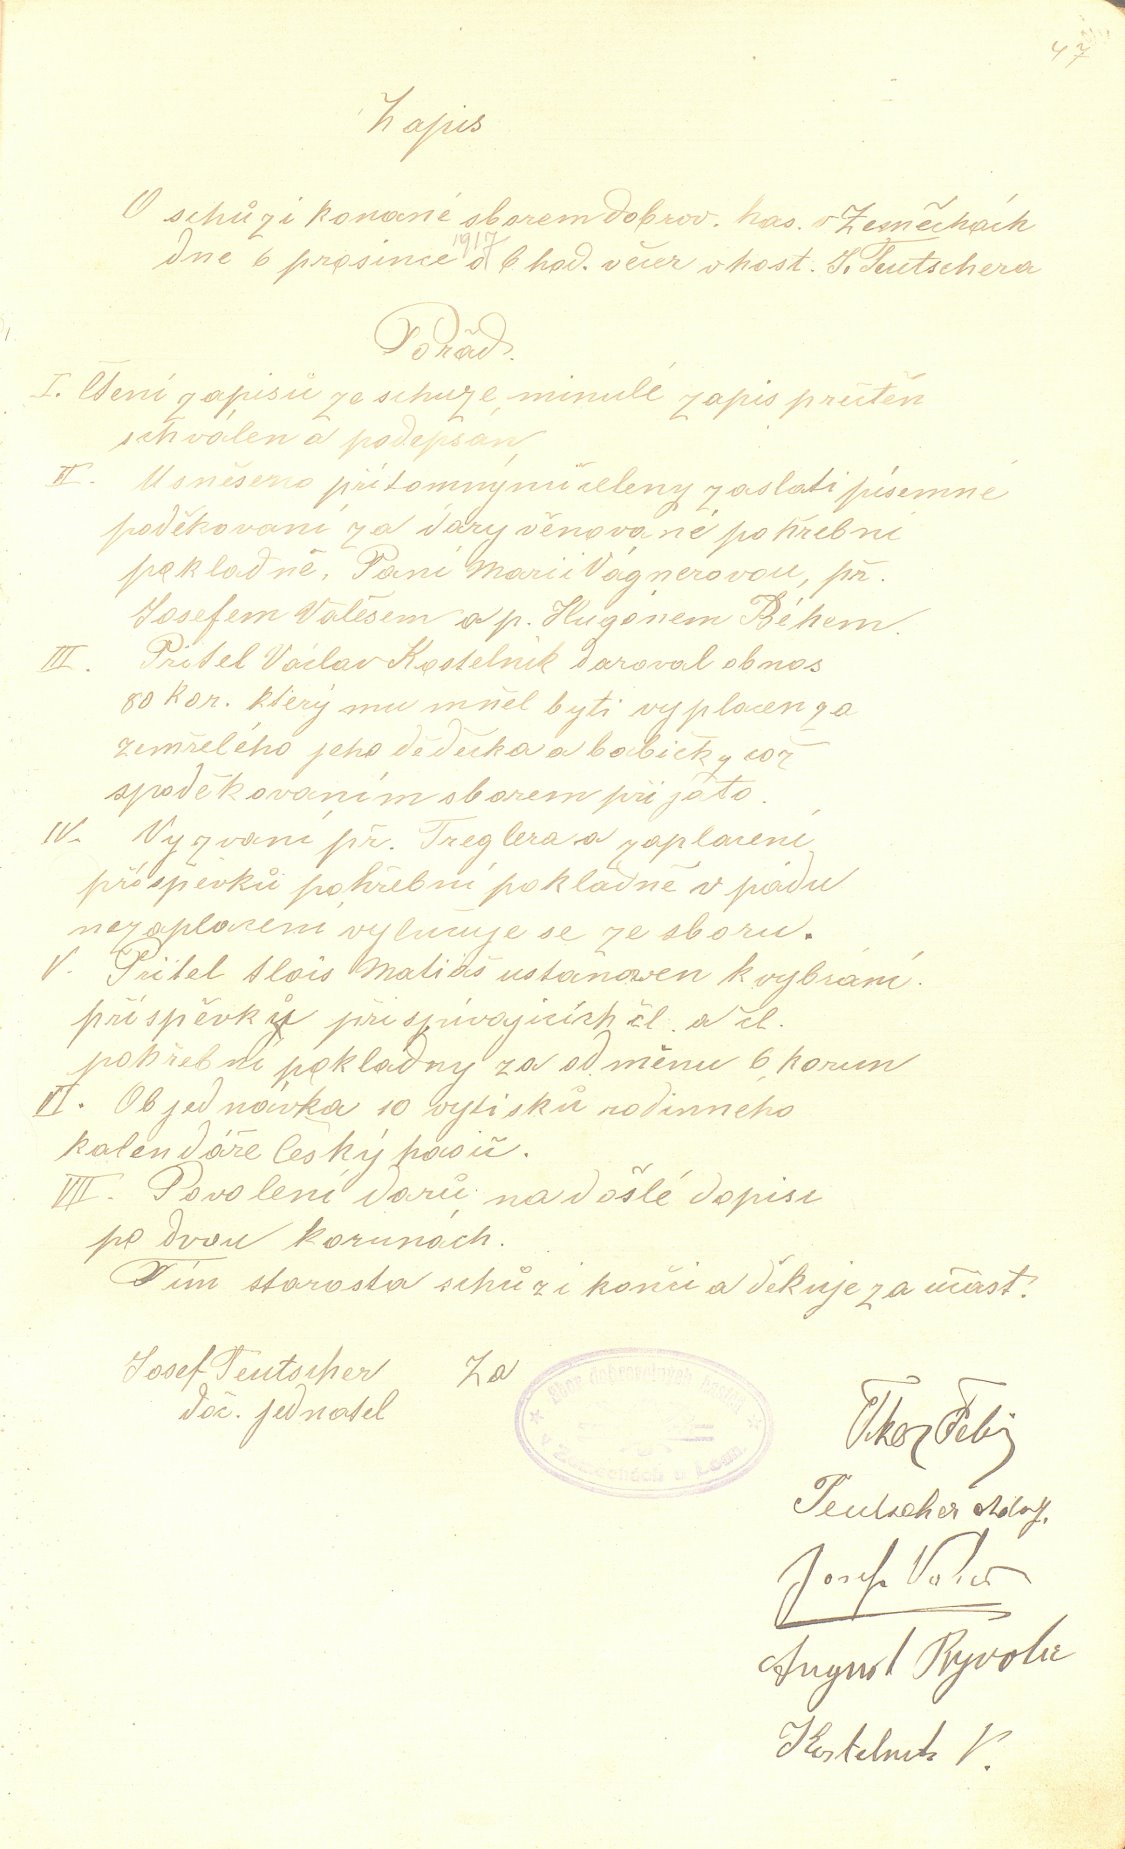 47
Zapis
O schůzi konané sborem dobrov. has. v Zeměchách
dne 6 prosince 1917 o 6 hod. večer v host. J. Teutschera
Pořad.
I. Čtení zapisů ze schuze minulé zapis přečten
schválen a podepsán
II. Usnešeno přítomnými členy zaslati písemné
poděkovaní za dary věnované pohřební
pokladně, Paní Marií Vágnerovou, př.
Josefem Valešem a p. Hugónem Béhem.
III. Přítel Václav Kostelnik daroval obnos
80 kor. který mu mněl byti vyplacen za
zemřelého jeho dědečka a babičky což
spoděkovaním sborem přijato.
IV. Vyzvaní př. Treglera a zaplacení
příspěvků pohřební pokladně v pádu
nezaplacení vylučuje se ze sboru.
V. Přítel Alois Matiáš ustanoven k vybrání
příspěvků přispívajících čl. a čl.
pohřební pokladny za odměnu 6 korun
VI. Objednávka 10 vytisků rodinného
kalendáře Český hasič.
VII. Povolení darů na došlé dopisi
po dvou korunách.
Tím starosta schůzi končí a děkuje za účast.
Josef Teutscher Za
doč. jednatel
Sbor dobrovolných hasičů
v Zeměchách u Loun.
Teutscher Adolf.
Josef Valeš
August Ryvola
Kostelnik V.